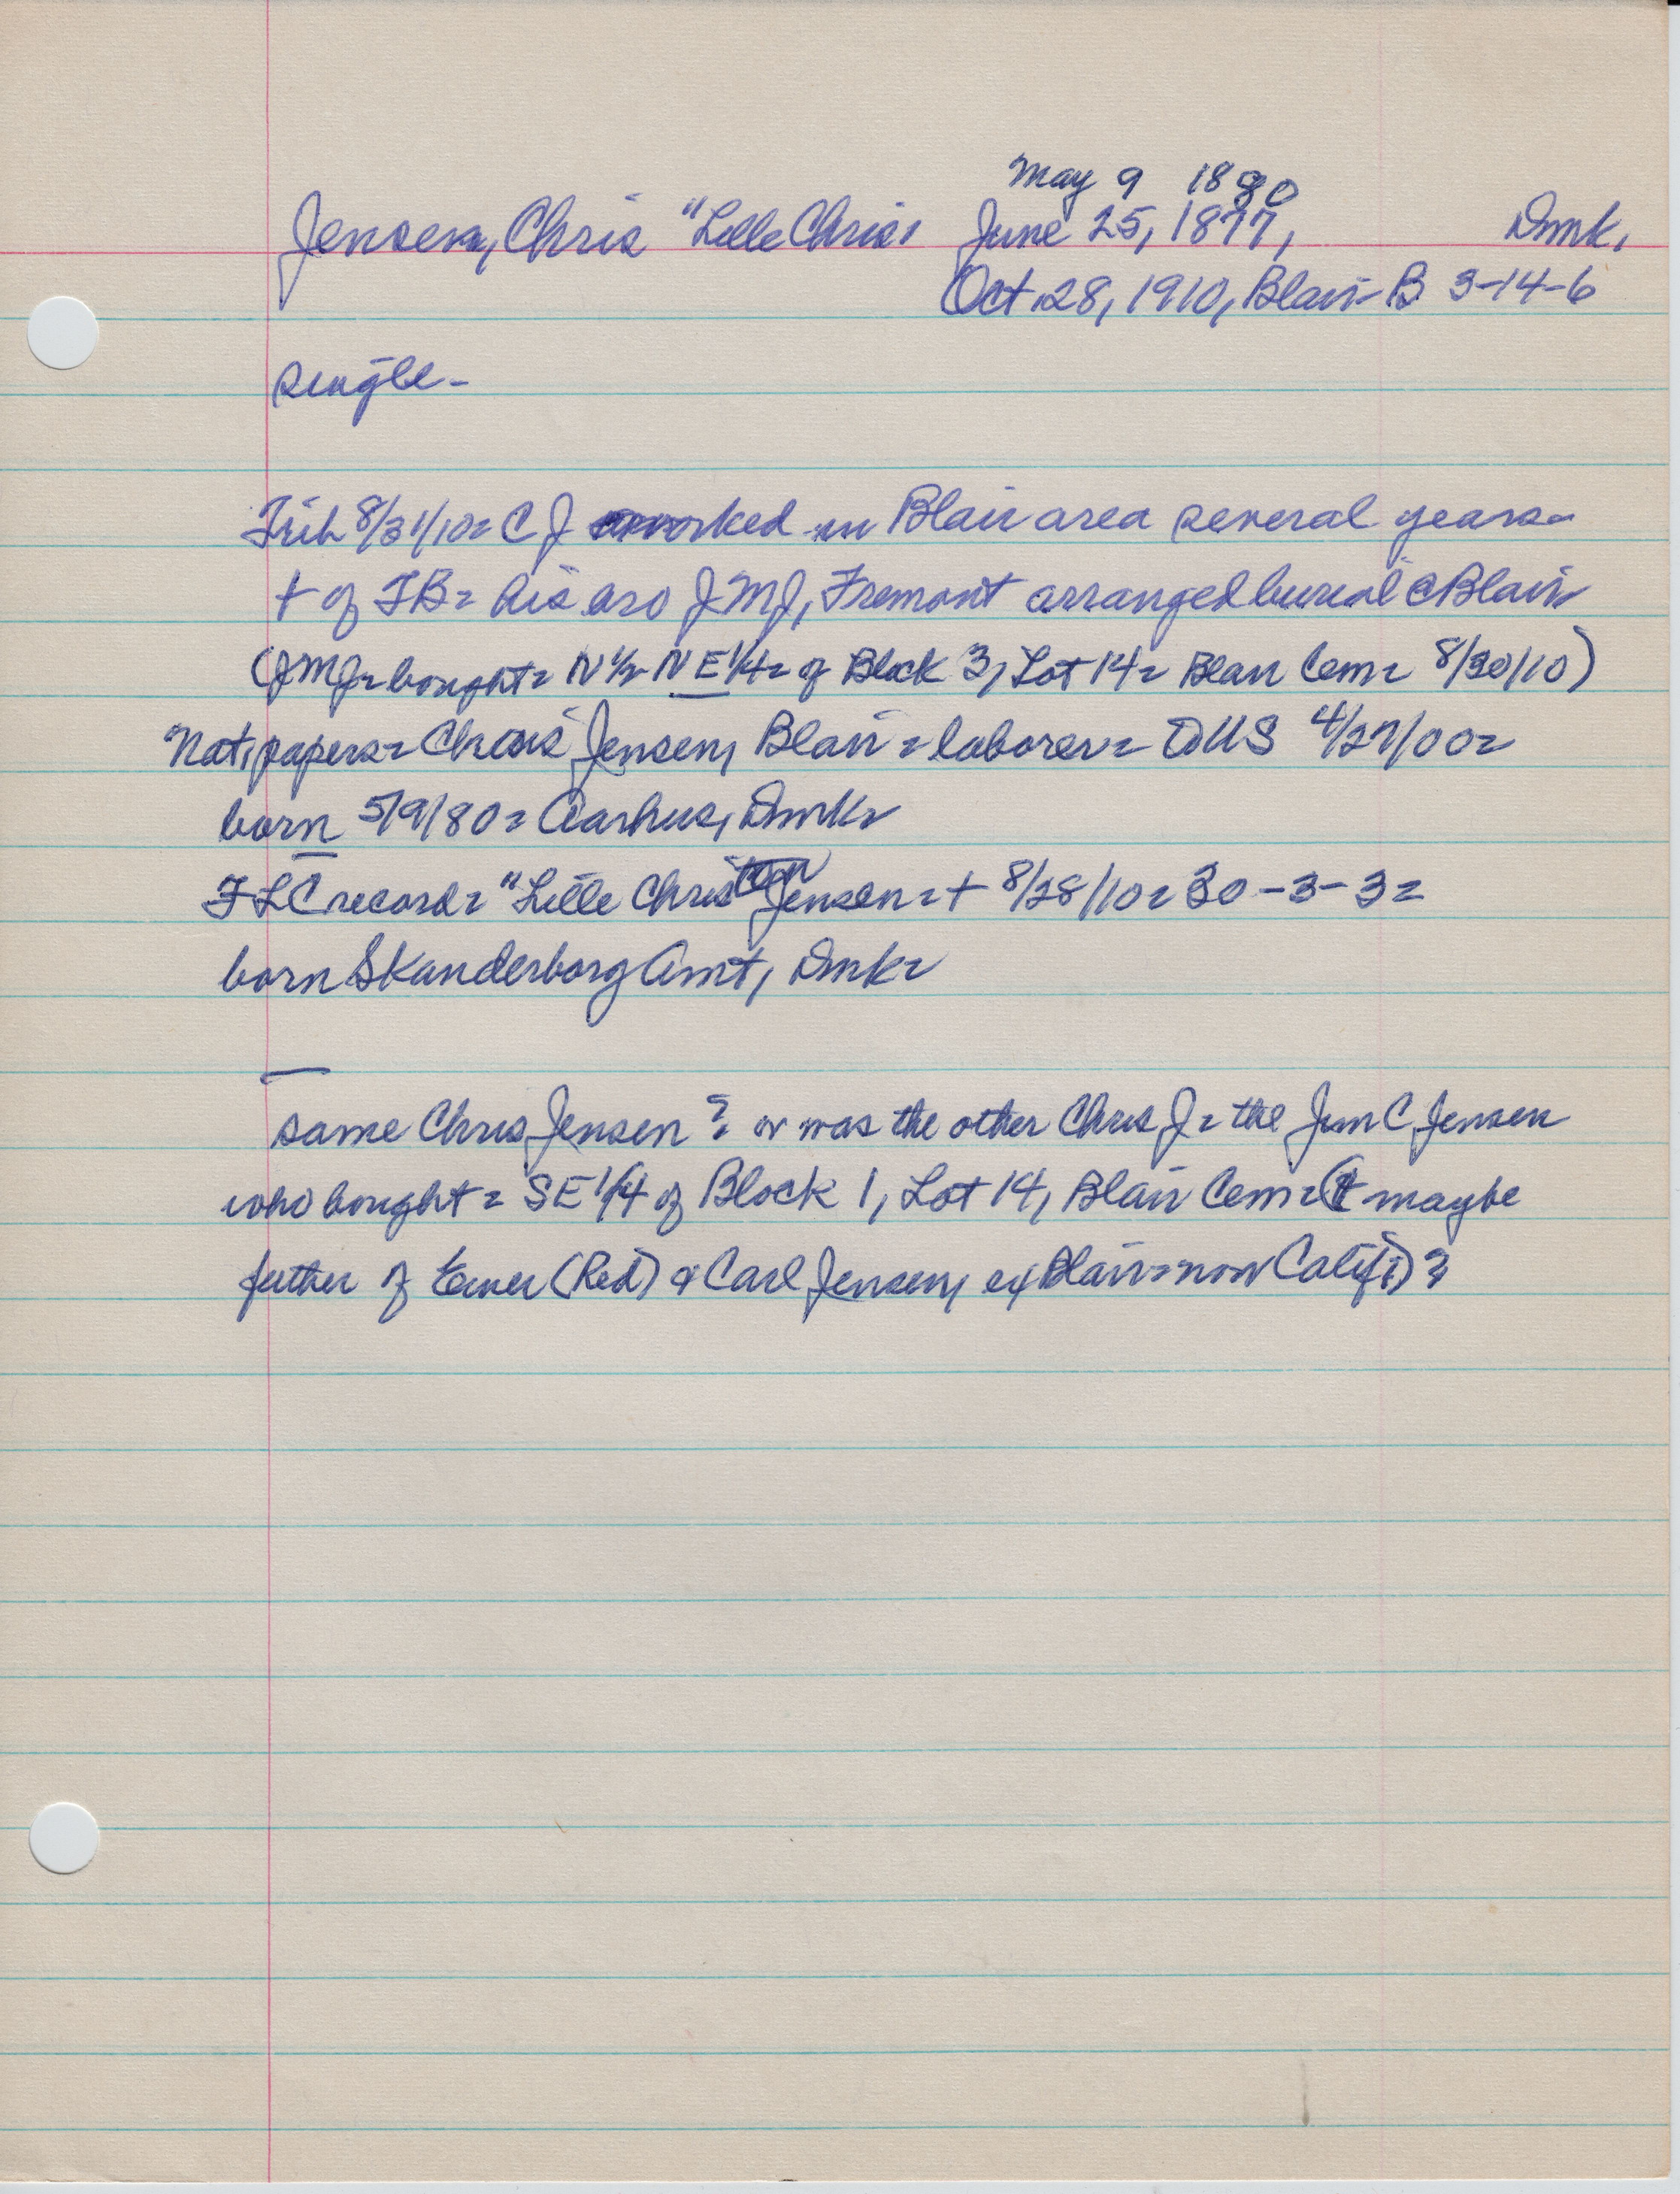 May 9 1880
Jensen, Chris "Lille Chris, June 25, 1877, Dmk.
Oct 28, 1910, Blair B 3-14-6
single-
Trib 8/31/10= C J worked in Blair area several years-
+ of TB= his bro JMJ, Fremont arranged burial @ Blair
(JMJ= bought= N½ NE 1/4= of Block 3, Lot 14= Blair Cem= 8/30/10)
Nat. papers= Chris Jensen, Blair= laborer= TUS 4/27/00=
born 5/9/80= Aarhus, Dmk=
FLC record= "Lille Chris Jensen= + 8/28/10= 30-3-3=
born Skanderborg Amt, Dmk=
same Chris Jensen? or was the other Chris J= the Jim C Jensen
who bought= SE 1/4 of Block 1, Lot 14, Blair Cem= ( maybe
father of (Red) & Carl Jensen, ex Blair= now Calif.)?